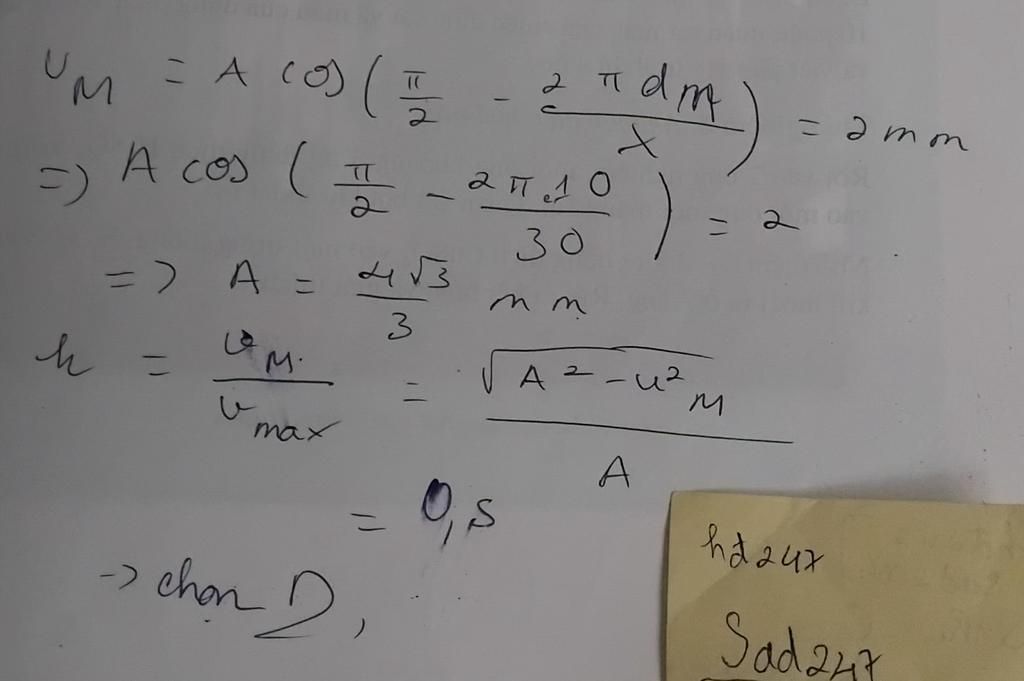 u_M = A cos(π/2 - 2πd_M/λ) = 2mm
=> A cos(π/2 - 2π.10/30) = 2
=> A = 4√3/3 mm
k = v_M/v_max = √(A² - u²_M)/A
= 0,5
-> chọn D,
hd247
Sad247